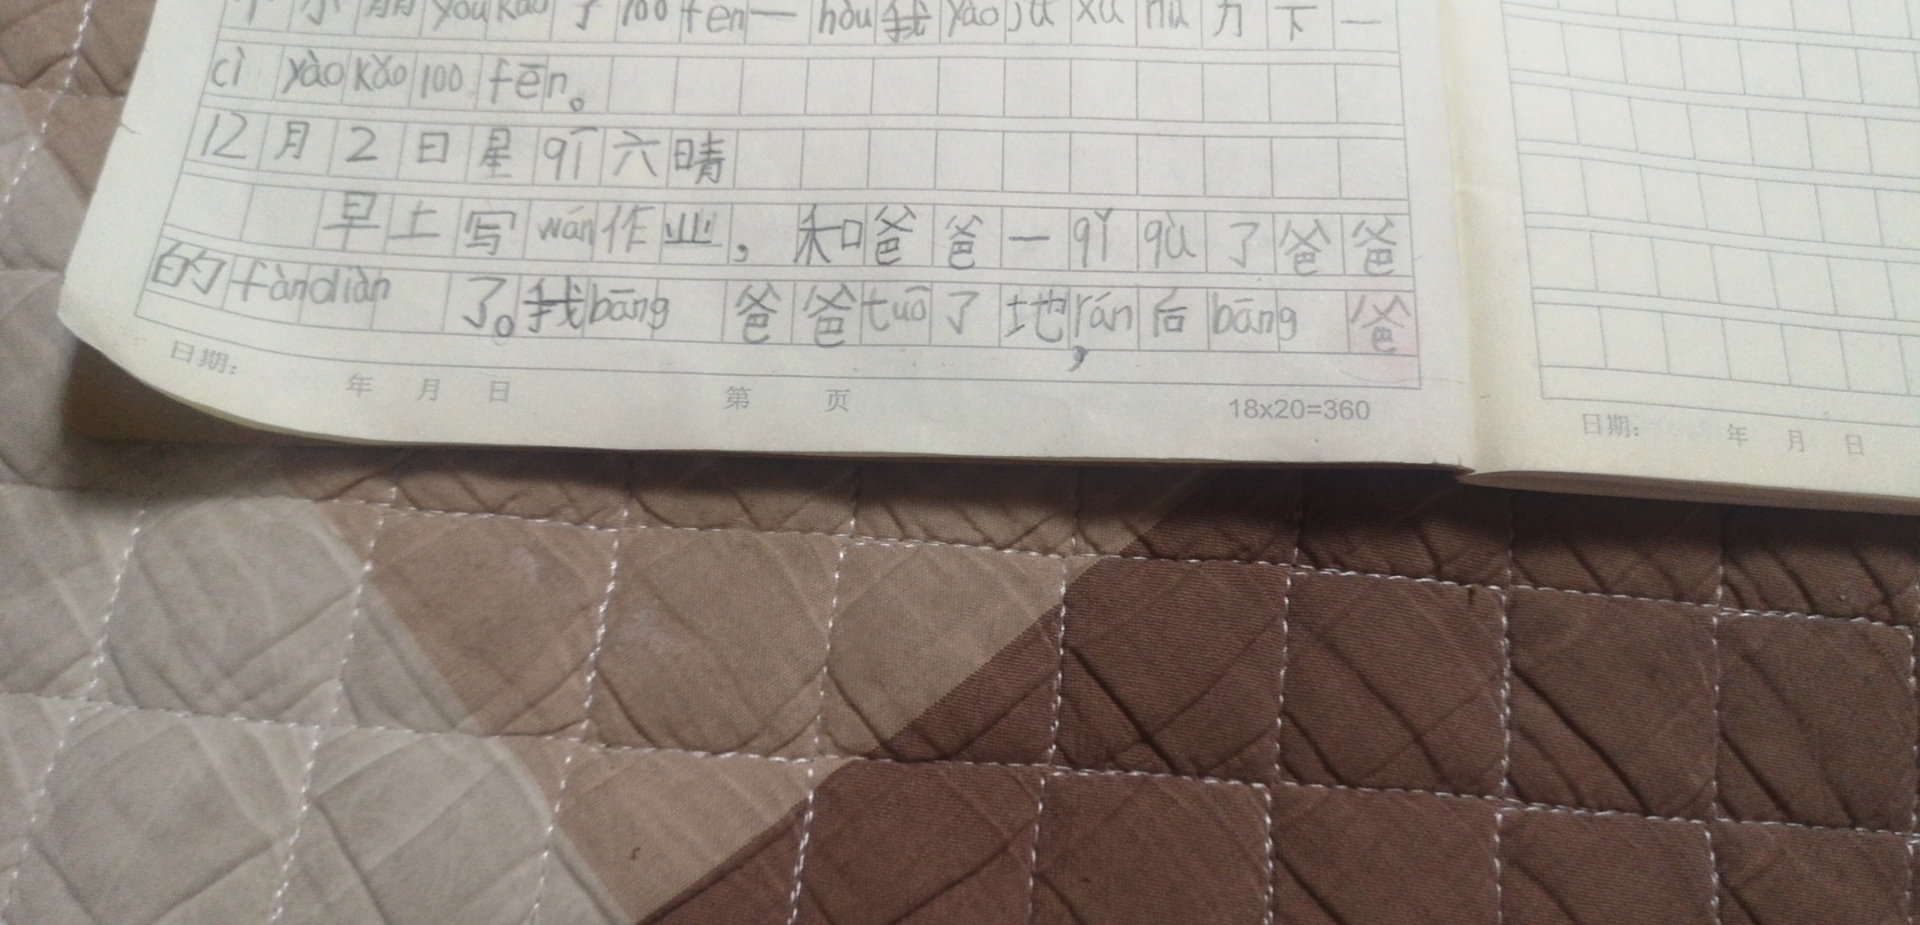 yòu kǎo 了 100 fēn 一 hòu 我 yào jì xù nǔ 力 下 一
cì yào kǎo 100 fēn。
12月2日星qī六晴
早上写wán作业，和爸爸一qǐ qù了爸爸
的fàndiàn了。我bāng爸爸tuō了地，rán后bāng爸
日期： 年 月 日 第 页 18x20=360
日期： 年 月 日